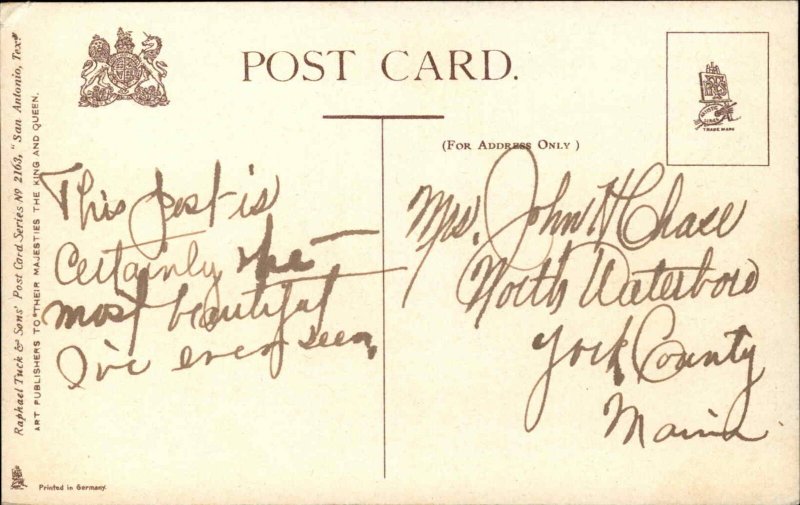 POST CARD.
(FOR ADDRESS ONLY)
TRADE MARK
Raphael Tuck & Sons' Post Card Series Nº 2163, "San Antonio, Tex"
ART PUBLISHERS TO THEIR MAJESTIES THE KING AND QUEEN.
This post is
Certainly the
most beautiful
I've ever seen,
Mrs. John H Chase
North Waterboro
York County
Maine
Printed in Germany.